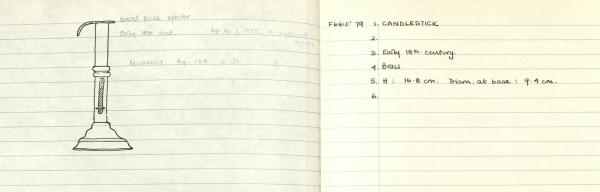 lateral slide ejector
Early 18th cent. up to c.
Michaelis fig. 159 p.121.
F660'79 1. CANDLESTICK
2.
3. Early 18th century.
4. Brass
5. H: 16.8 cm. Diam. at base: 9.4 cm.
6.